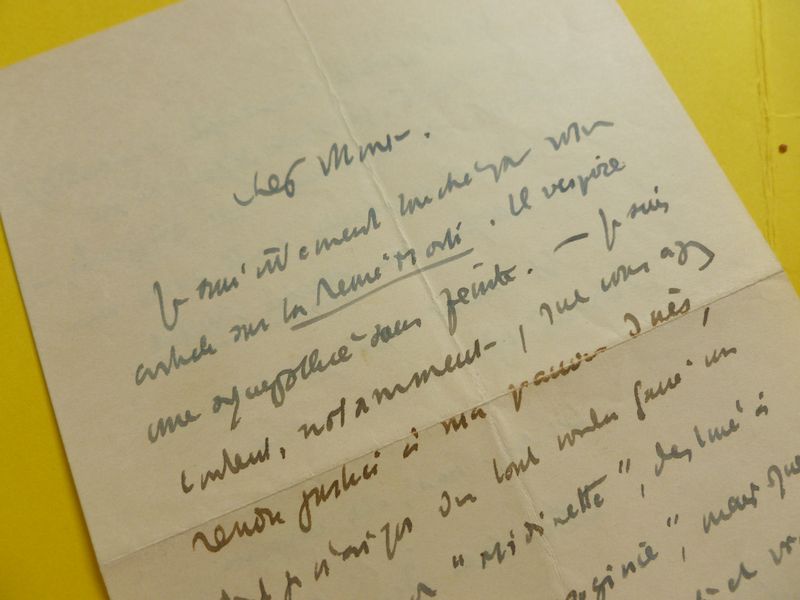 cher Monsr.
Je suis vivement touché par votre
article sur La Reine Morte. Il respire
une sympathie sans feinte. — Je suis
content, notamment, que vous ayez
rendu justice à ma pauvre Inès,
dont je n'ai pas du tout voulu faire un
"midinette", destiné à
", mais que
et